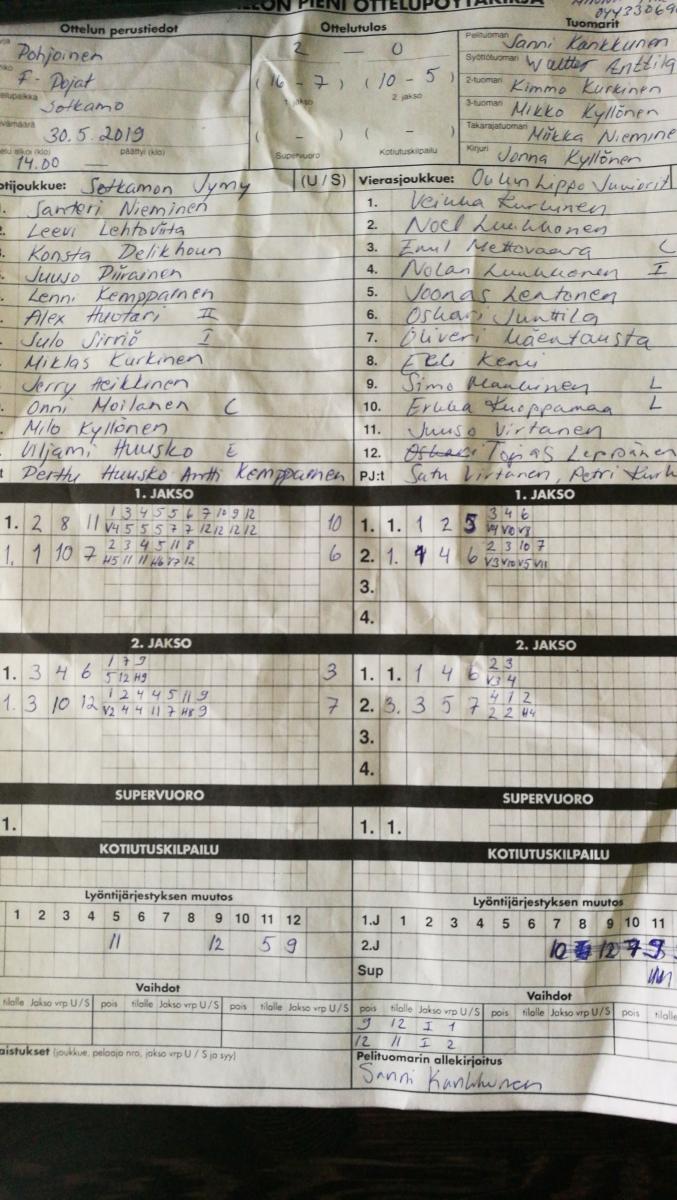 PIENI OTTELUPÖYTÄKIRJA
Ottelun perustiedot
Ottelutulos
Tuomarit
Pohjoinen
F-Pojat
Sotkamo
30.5.2019
14.00
päättyi (klo)
2 – 0
( 16 - 7 ) ( 10 - 5 )
1. jakso 2. jakso
( - ) ( - )
Supervuoro Kotiutuskilpailu
Pelituomari Sanni Kankkunen
Syöttötuomari Waltter Anttila
2-tuomari Kimmo Kurkinen
3-tuomari Mikko Kyllönen
Takarajatuomari Miikka Niemine
Kirjuri Jonna Kyllönen
otijoukkue: Sotkamon Jymy (U / S)
Santeri Nieminen
Leevi Lehtoviita
Konsta Delikhoun
Juuso Piirainen
Lenni Kemppainen
Alex Huotari II
Julo Sirviö I
Miklas Kurkinen
Jerry Heikkinen
Onni Moilanen C
Milo Kyllönen
Viljami Huusko E
Perttu Huusko Antti Kemppainen
Vierasjoukkue: Oulun Lippo Juniorit
1. Kurkinen
2. Noel Luukkonen
3. Emil Mettovaara C
4. Nolan Luukkonen I
5. Joonas Lehtonen
6. Oskari Junttila
7. Oliveri Mäentausta
8. Kemi
9. Simo L
10. Kuoppamaa L
11. Juuso Virtanen
12. Leppänen
PJ:t Satu Virtanen, Petri Kurk
1. JAKSO
1. 2 8 11 1 3 4 5 5 6 7 10 9 12 10
V4 5 5 5 7 7 12 12 12 12
1. 1 10 7 2 3 4 5 11 8 6
H5 11 11 H6 V7 12
1. JAKSO
1. 1. 1 2 5 3 4 6
V4 V10 V3
2. 1. 4 4 6 2 3 10 7
V3 V10 V5 V11
3.
4.
2. JAKSO
1. 3 4 6 1 7 9 3
5 12 H9
1. 3 10 12 1 2 4 4 5 11 9 7
V2 4 4 11 7 H8 9
2. JAKSO
1. 1. 1 4 6 2 3
V3 4
2. 3. 3 5 7 4 1 2
2 2 H4
3.
4.
SUPERVUORO
1.
SUPERVUORO
1. 1.
KOTIUTUSKILPAILU
KOTIUTUSKILPAILU
Lyöntijärjestyksen muutos
1 2 3 4 5 6 7 8 9 10 11 12
11 12 5 9
Lyöntijärjestyksen muutos
1.J 1 2 3 4 5 6 7 8 9 10 11
2.J 10 12 7 9
Sup
Vaihdot
tilalle Jakso vrp U / S pois tilalle Jakso vrp U / S pois tilalle Jakso vrp U / S
Vaihdot
pois tilalle Jakso vrp U / S pois tilalle Jakso vrp U / S pois tilalle
9 12 I 1
12 11 I 2
aistukset (joukkue, pelaaja nro, jakso vrp U / S ja syy)
Pelituomarin allekirjoitus
Sanni Kankkunen